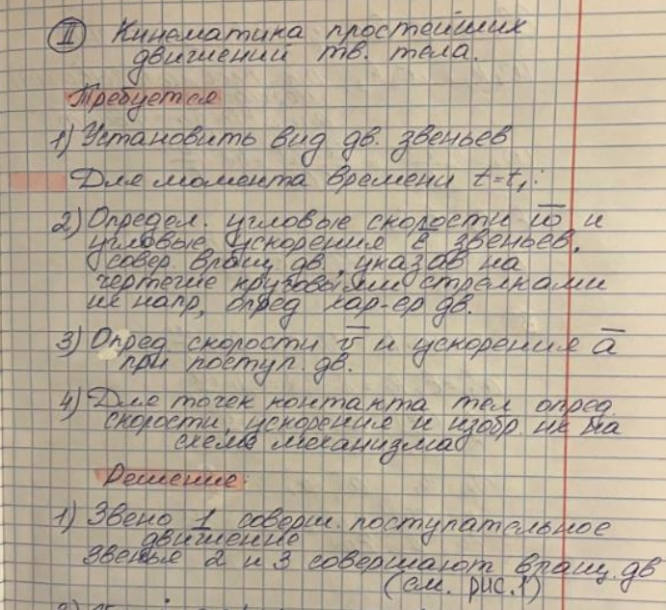 II Кинематика простейших
движений тв. тела.
Требуется
1) Установить вид дв. звеньев
Для момента времени t=t₁:
2) Определ. угловые скорости ω̅ и
угловые ускорения ε̅ звеньев,
совер. вращ дв, указав на
чертеже круговыми стрелками
их напр, опред хар-ер дв.
3) Опред скорости v̅ и ускорения a̅
при поступ. дв.
4) Для точек контакта тел опред.
скорости, ускорения и изобр. их на
схеме механизма
Решение:
1) Звено 1 соверш. поступательное
движение
Звенья 2 и 3 совершают вращ. дв
(см. рис. 1)